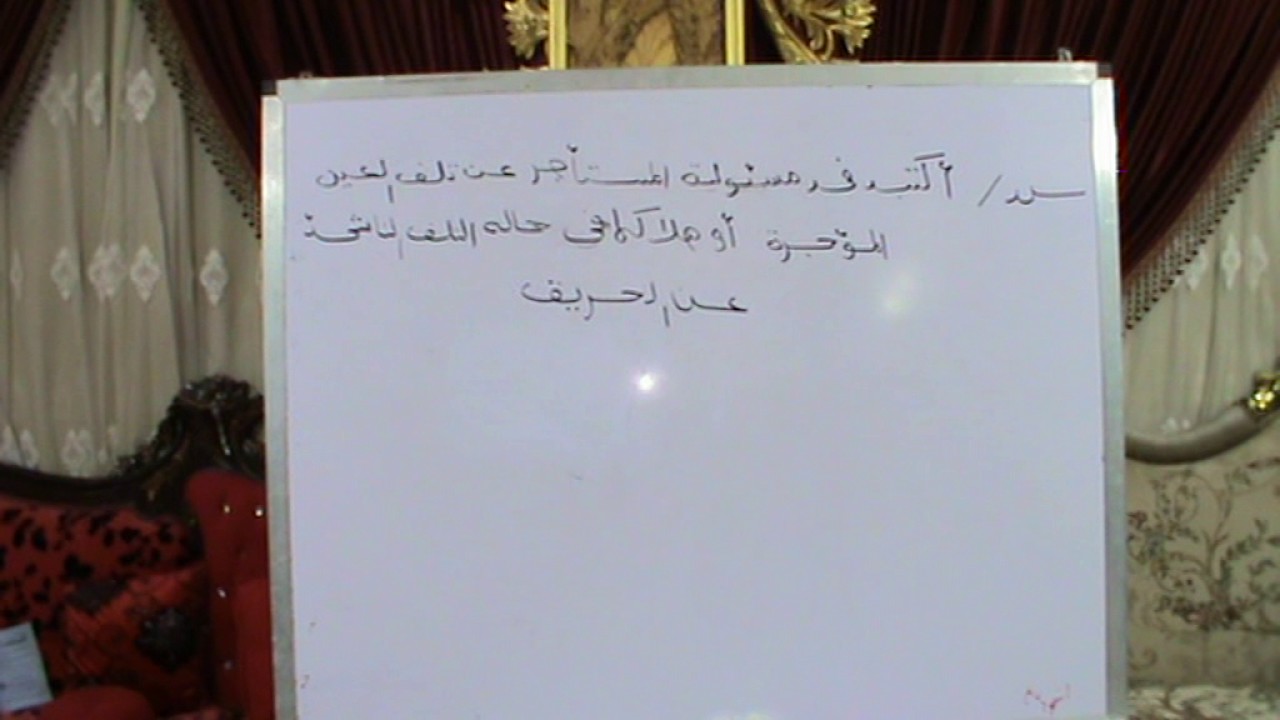 س/ أكتب في مسئولية المستأجر عن تلف العين
المؤجرة أو هلاكها في حاله التلف الناشئ
عن الحريق